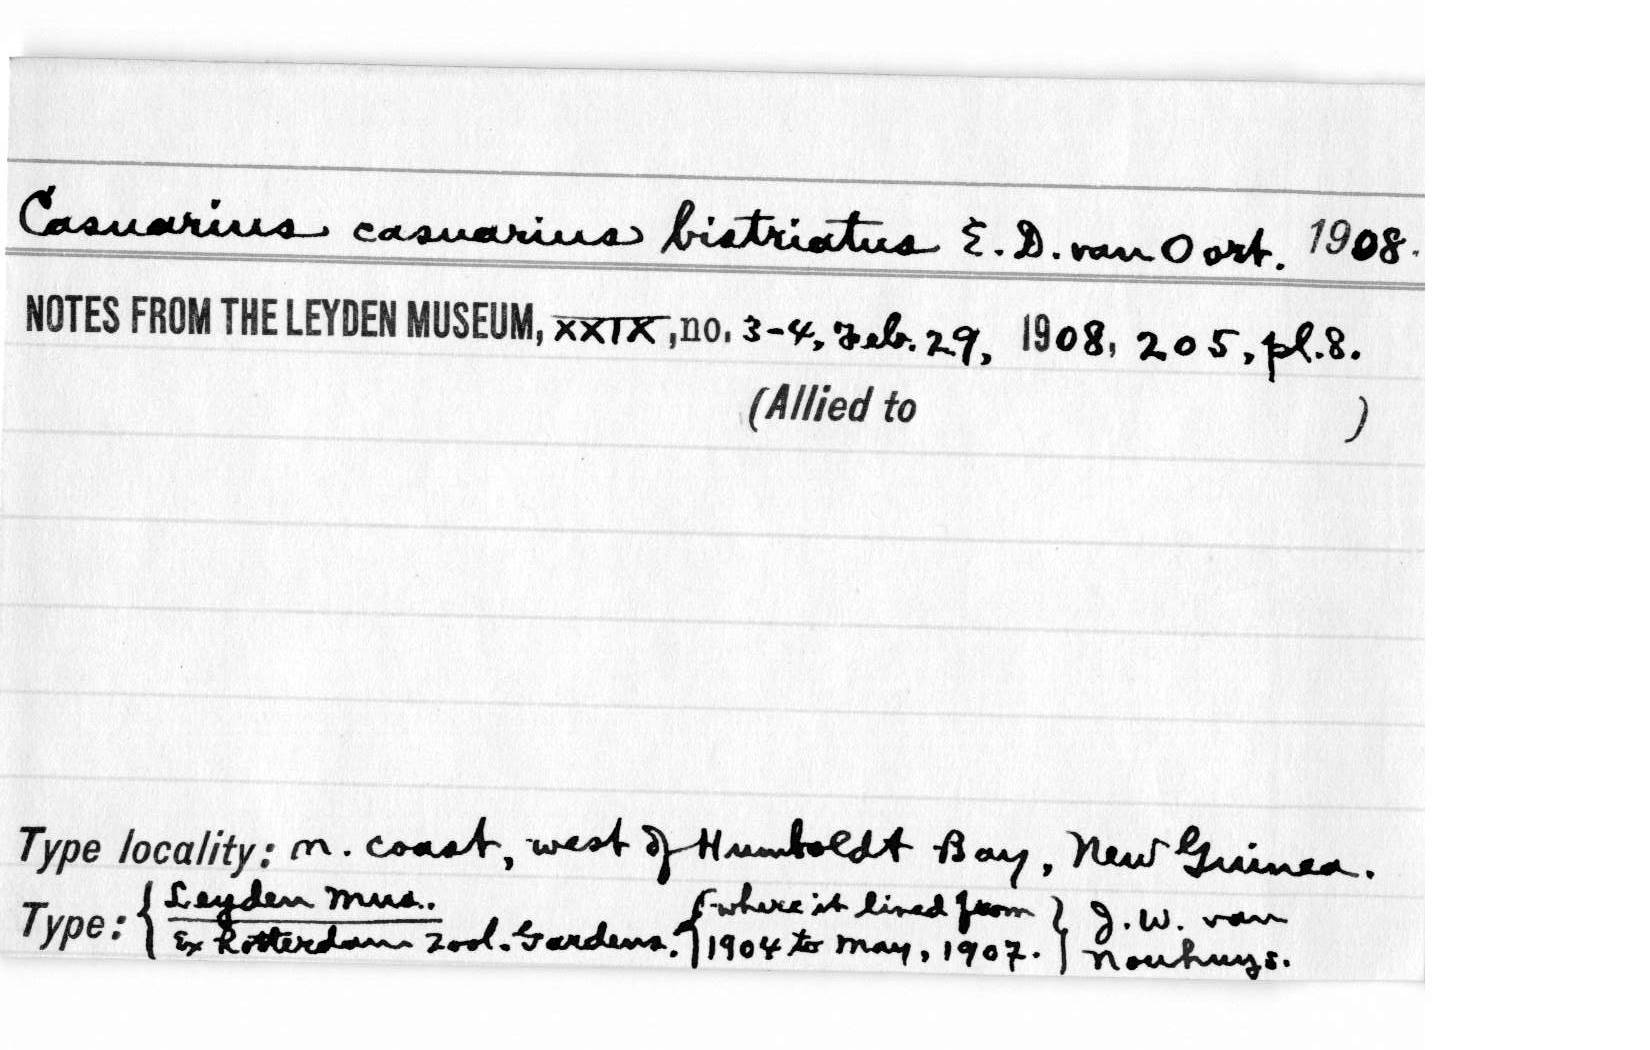 Casuarius casuarius bistriatus E. D. van Oort. 1908.
NOTES FROM THE LEYDEN MUSEUM, XXIX, no. 3-4, Feb. 29, 1908, 205, pl. 8.
(Allied to )
Type locality: n. coast, west of Humboldt Bay, New Guinea.
Type: { Leyden Mus. { where it lived from } J. W. van
Ex Rotterdam Zool. Gardens. 1904 to May, 1907. Nouhuys.